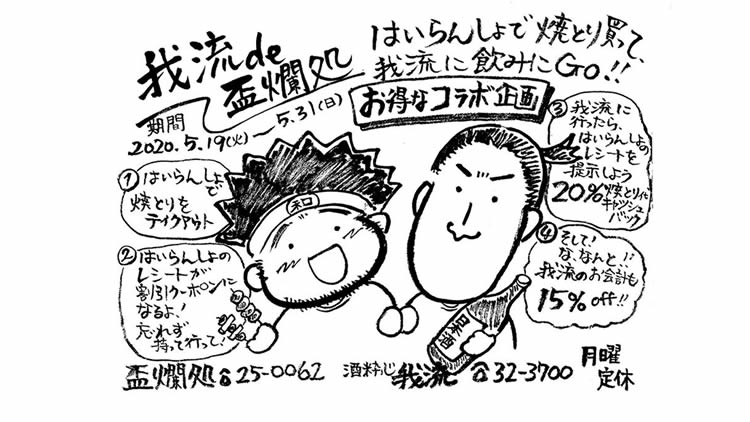 我流de
盃爛処
はいらんしょで焼とり買って、
我流に飲みにGo!!
お得なコラボ企画
期間
2020.5.19(火)〜5.31(日)
①はいらんしょで
焼とりを
テイクアウト
②はいらんしょの
レシートが
割引クーポンに
なるよ!
忘れず
持って行って!
③我流に
行ったら、
はいらんしょの
レシートを
提示しよう
20%焼とり代
キャッシュ
バック
④そして!
な、なんと!!
我流のお会計も
15%off!!
和
日本酒
盃爛処☎25-0062
酒粋心 我流 ☎32-3700
月曜
定休